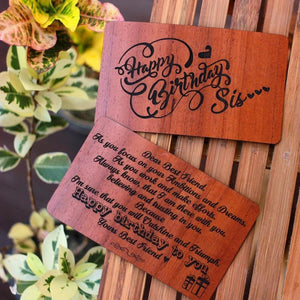 Happy
Birthday
Sis...
Dear Best Friend,
As you focus on your Ambitions and Dreams,
As you strive and make efforts.
Always know, that I am here with you
believing and rooting to you.
Because
I'm sure that you will Outshine and Triumph.
Happy birthday to you
Yours Best Friend